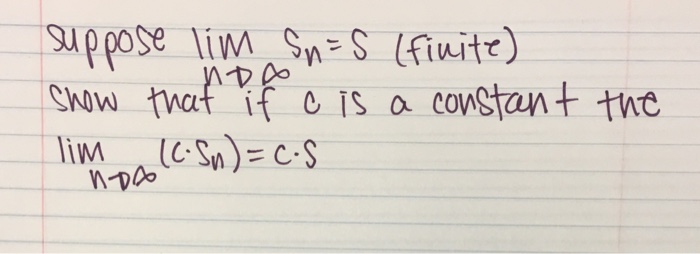 suppose lim Sn = S (finite)
n→∞
Show that if c is a constant the
lim (c·Sn) = c·S
n→∞